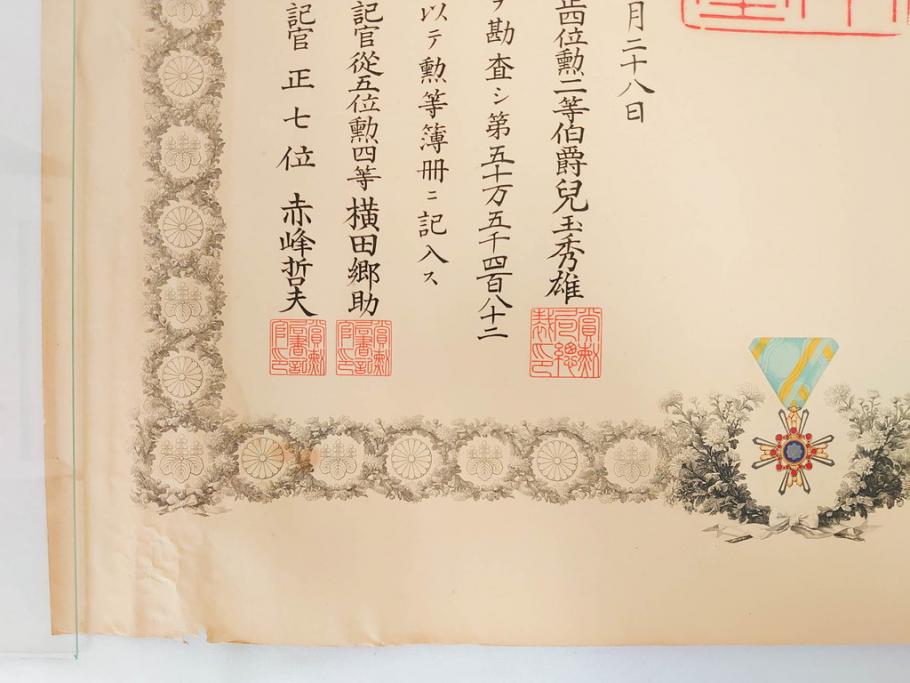 月二十八日
正四位勲二等伯爵兒玉秀雄
ヲ勘査シ第五十万五千四百八十二
以テ勲等簿冊ニ記入ス
記官從五位勲四等橫田鄉助
記官正七位赤峰哲夫
賞勲局總裁之印
賞勲局書記官印
賞勲局書記官印